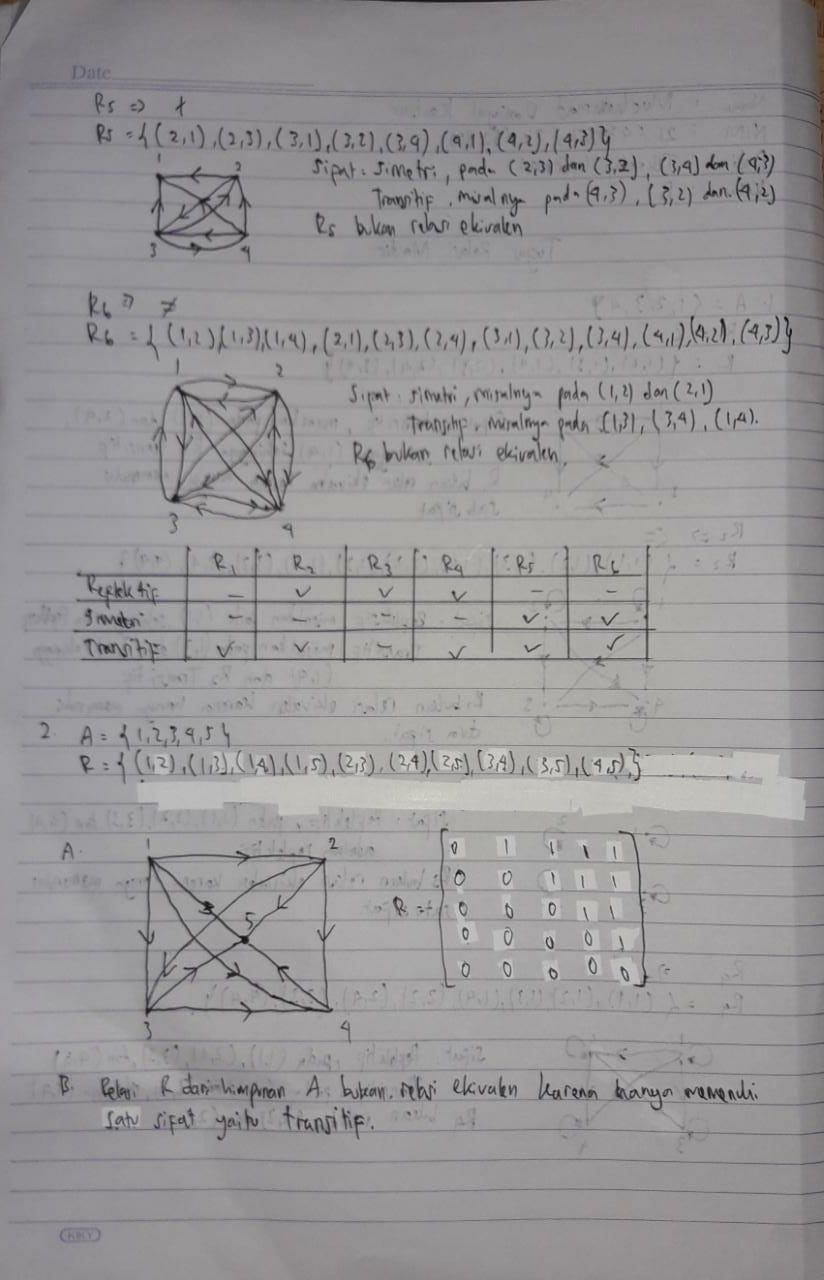 Date
R5 => ∤
R5 = { (2,1), (2,3), (3,1), (3,2), (3,4), (4,1), (4,2), (4,3)}
1 2
3 4
Sipat : Simetri, pada (2,3) dan (3,2), (3,4) dan (4,3)
Transitif, misalnya pada (4,3), (3,2) dan (4,2)
R5 bukan relasi ekivalen
R6 => ≠
R6 = { (1,2),(1,3),(1,4), (2,1), (2,3), (2,4), (3,1), (3,2), (3,4), (4,1),(4,2), (4,3)}
1 2
3 4
Sipat : simetri, misalnya pada (1,2) dan (2,1)
Transitip, misalnya pada (1,3), (3,4), (1,4).
R6 bukan relasi ekivalen.
R1 R2 R3 R4 R5 R6
Replektif - ✓ ✓ ✓ - -
Simetri - - - - ✓ ✓
Transitif ✓ ✓ - ✓ ✓ ✓
2. A = {1,2,3,4,5}
R = { (1,2), (1,3), (1,4), (1,5), (2,3), (2,4), (2,5), (3,4), (3,5), (4,5)}
A.
1 2
5
3 4
R =
0 1 1 1 1
0 0 1 1 1
0 0 0 1 1
0 0 0 0 1
0 0 0 0 0
B. Relasi R dari himpunan A bukan relasi ekivalen karena hanya memenuhi
satu sifat yaitu transitif.
KKY